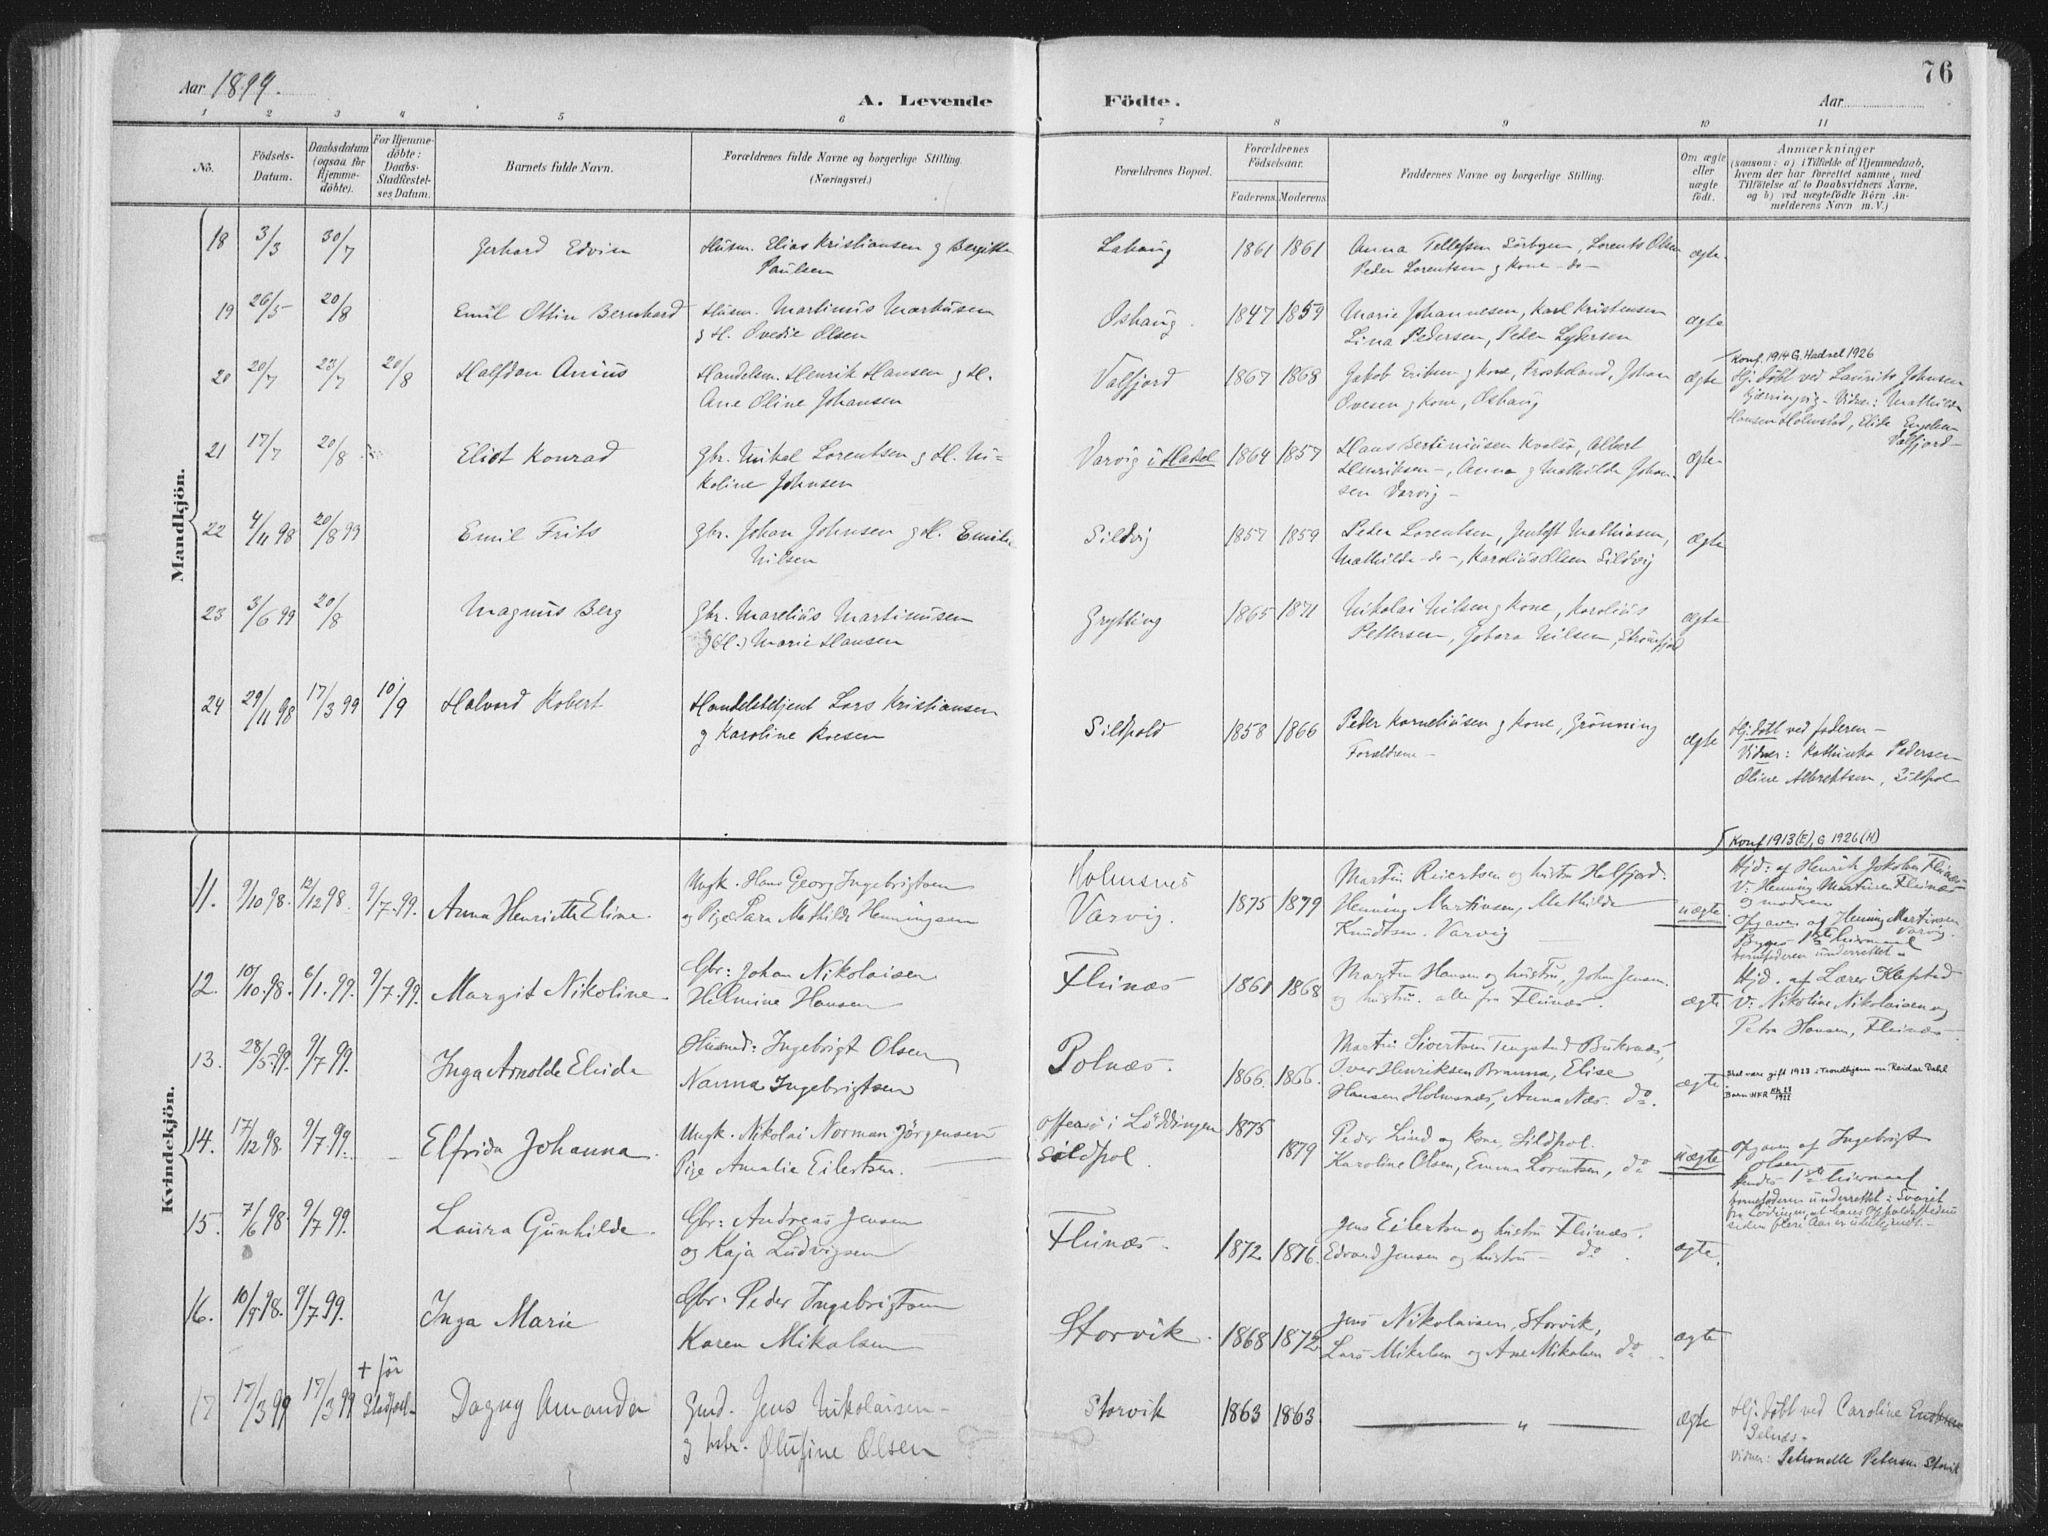 Aar 1899.
A. Levende Födte.
Aar
76
1 2 3 4 5 6 7 8 9 10 11
No.
Födsels-Datum.
Daabsdatum (ogsaa for Hjemmedöbte).
For Hjemmedöbte: Daabs-Stadfæstelses Datum.
Barnets fulde Navn.
Forældrenes fulde Navne og borgerlige Stilling. (Næringsvei.)
Forældrenes Bopæl.
Forældrenes Födselsaar.
Faderens. Moderens.
Faddernes Navne og borgerlige Stilling.
Om ægte eller uægte födt.
Anmærkninger
(saasom: a) i Tilfælde af Hjemmedaab, hvem der har forrettet samme, med Tilföielse af to Daabsvidners Navne, og b) ved uægtefödte Börn Anmelderens Navn m. V.)
Mandkjön.
18 3/3 30/7 Gerhard Edvin Husm. Elias Kristiansen g Bergitte Paulsen Lahaug 1861 1861 Anna Tellefsen Sörbyen, Lorents Olsen Peder Lorentsen g Kone -do- ægte
19 26/5 20/8 Emil Ottin Bernhard Husm. Martinus Markusen g H. Ovedie Olsen Oshaug. 1847 1859 Marie Johannesen, Karl Kristensen Lina Pedersen, Peder Lydersen ægte
20 20/7 23/7 20/8 Halfdan Anius Handelsm. Henrik Hansen g H. Ane Oline Johansen Valfjord 1867 1868 Jakob Eriksen g Kone, Froskeland, Johan Ovesen g Kone, Oshaug ægte Konf. 1914 G. Hadsel 1926
Hj. döbt ved Laurits Johnsen Kjærringvig - Vidner: Mathilde Hansen Holmstad, Elide Valfjord -
21 17/7 20/8 Eliot Konrad Gbr. Mikal Lorentsen g H. Nikoline Johnsen Varvig i Hadsel 1864 1857 Hans Bertinussen Kvalsö, Albert Henriksen -, Anna g Mathilde Johansen Varvig - ægte
22 4/11 98 20/8 99 Emil Frits Gbr. Johan Johnsen g H. Emilie Nilsen Sildvig 1857 1859 Peder Lorentsen, Jentoft Mathiasen, Mathilde -do-, Karolius Olsen Sildvig ægte
23 3/6 99 20/8 Magnus Berg Gbr. Marelius Martinusen g (H.) Marie Hansen Grytting 1865 1871 Nikolai Nilsen g Kone, Karolius Pettersen, Johara Nilsen, Strömfjord ægte
24 29/11 98 17/3 99 10/9 Halvard Robert Handelsbetjent Lars Kristiansen g Karoline Roesen Sildpold 1858 1866 Peder Korneliusen g Kone, Grönning Forældrene - ægte Hj. döbt ved faderen - Vidner: Kathinka Pedersen Oline Albrektsen, Sildpol
Kvindekjön.
11. 9/10 98. 12/12 98. 9/7. 99. Anna Henriette Eline. Ungk. Hans Georg Ingebrigtsen og Pige Sara Mathilde Henningsen Holmsnes Varvig. 1875 1879 Martin Reiertsen og hustru Halfjord. Henning Martinsen, Mathilde Knudtsen. Varvig uægte Konf 1913 (E), G 1926 (H)
Hjd: af Henrik Jakobsen Flesnæs V: Henning Martinsen Flesnæs og moderen
Opgaven af Henning Martinsen Varvig.
barnefaderen underrettet.
12. 10/10. 98. 6/1. 99. 9/7. 99. Margit Nikoline. Gbr: Johan Nikolaisen Helmine Hansen Flesnæs 1861 1868 Martin Hansen og hustru, Johan Jensen og hustru. alle fra Flesnæs. ægte Hjd. af Lærer Klefstad V: Nikoline Nikolaisen og Petra Hansen, Flesnæs -
13. 28/5 99. 9/7 99. Inga Arnolde Elvida Husmd: Ingebrigt Olsen Nanna Ingebrigtsen Polnæs. 1866. 1866. Martin Sivertsen Tengstad Buksnæs, Iver Henriksen Branna, Elise Hansen Holmsnæs, Anna Næs. do. ægte Skal være gift 1923 i Trondhjem m. Reidar Dahl
14. 17/12 98. 9/7 99. Elfrida Johanna. Ungk. Nikolai Norman Jörgensen Pige Amalie Eilertsen. Offersö i Lödingen Sildpol 1875 1879 Peder Lind og Kone, Sildpol. Karoline Olsen, Emma Lorentsen, do uægte Opgaven af Ingebrigt Olsen
barnefaderen underrettet: Svaret fra Lödingen, at hans Opholdssted siden flere Aar er ubekjendt. -
15. 7/6 98. 9/7 99. Laura Gunhilde. Gbr: Andreas Jensen og Kaja Ludvigsen Flesnæs. 1872 1876. Jens Eilertsen og hustru Flesnæs. Edvard Jensen og hustru - do. ægte.
16. 10/9. 98. 9/7 99. Inga Marie Gbr: Peder Ingebrigtsen Karen Mikalsen Storvik. 1868 1872 Jens Nikolaisen, Storvik, Lars Mikalsen og Ane Mikalsen do. ægte
17 17/3 99 17/3 99 + för Stadfæst. Dagny Amanda Gmd. Jens Nikolaisen - g hstr. Olufine Olsen Storvik 1863 1863 — " — ægte Hj. döbt ved Caroline
vidner: Petronelle Petersen Storvik